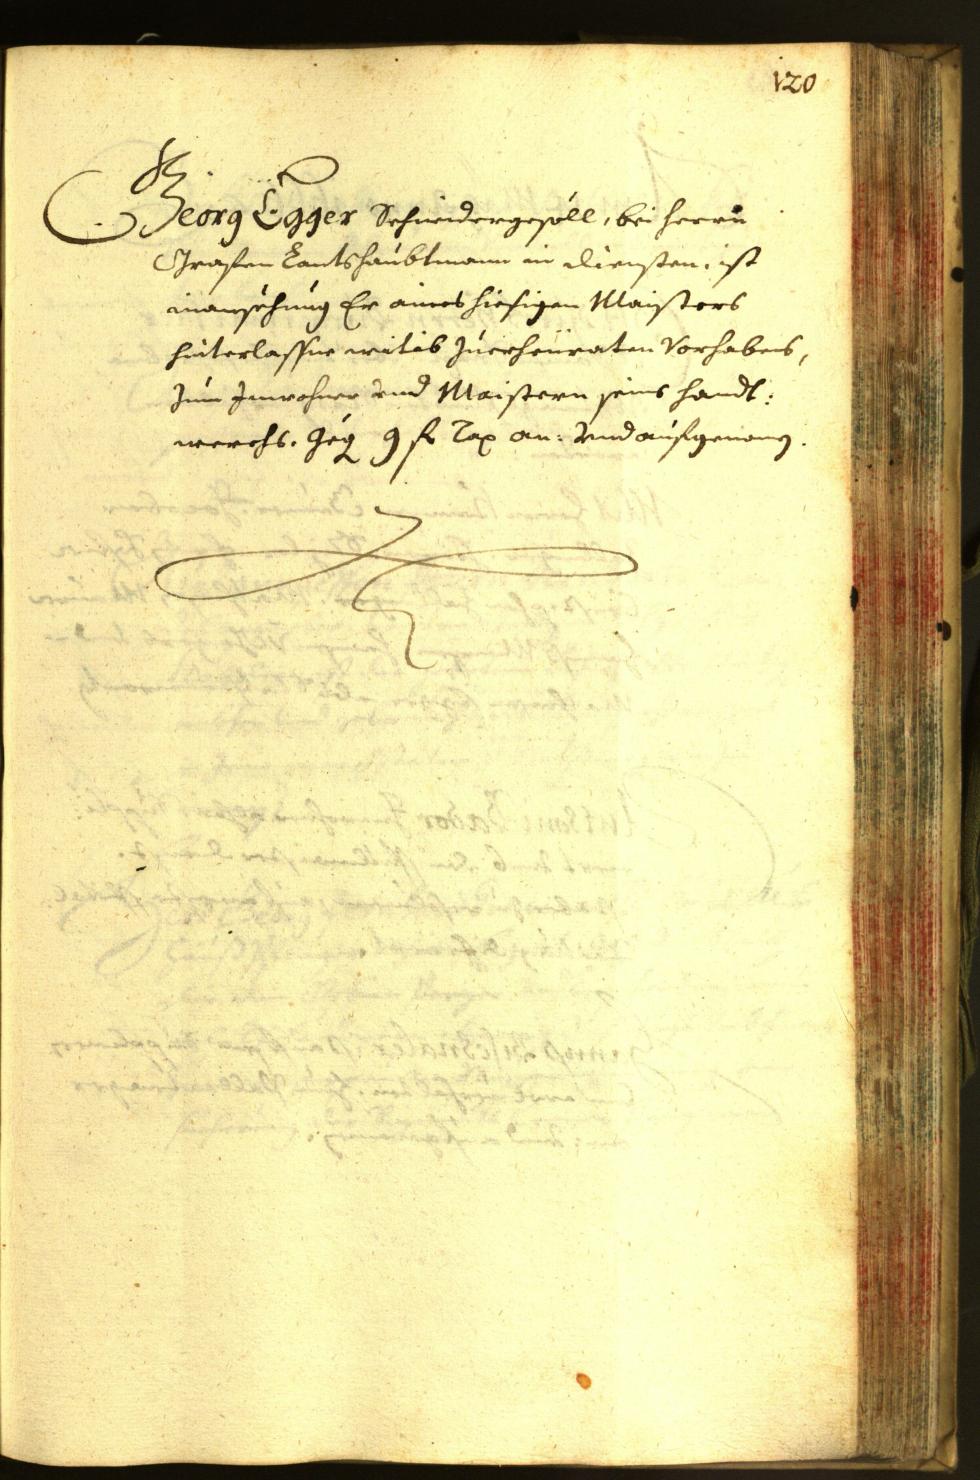 120
Georg Egger Schneidergesöll, bei herrn
Grafen Lantshaubtmann in diensten, ist
in ansehung Er aines hiesigen Maisters
hinterlassne witib zuerheüraten Vorhabens,
zum Inwohner und Maistern seins handt:
werchs. geg 9 fl Tax an: und aufgenomen.